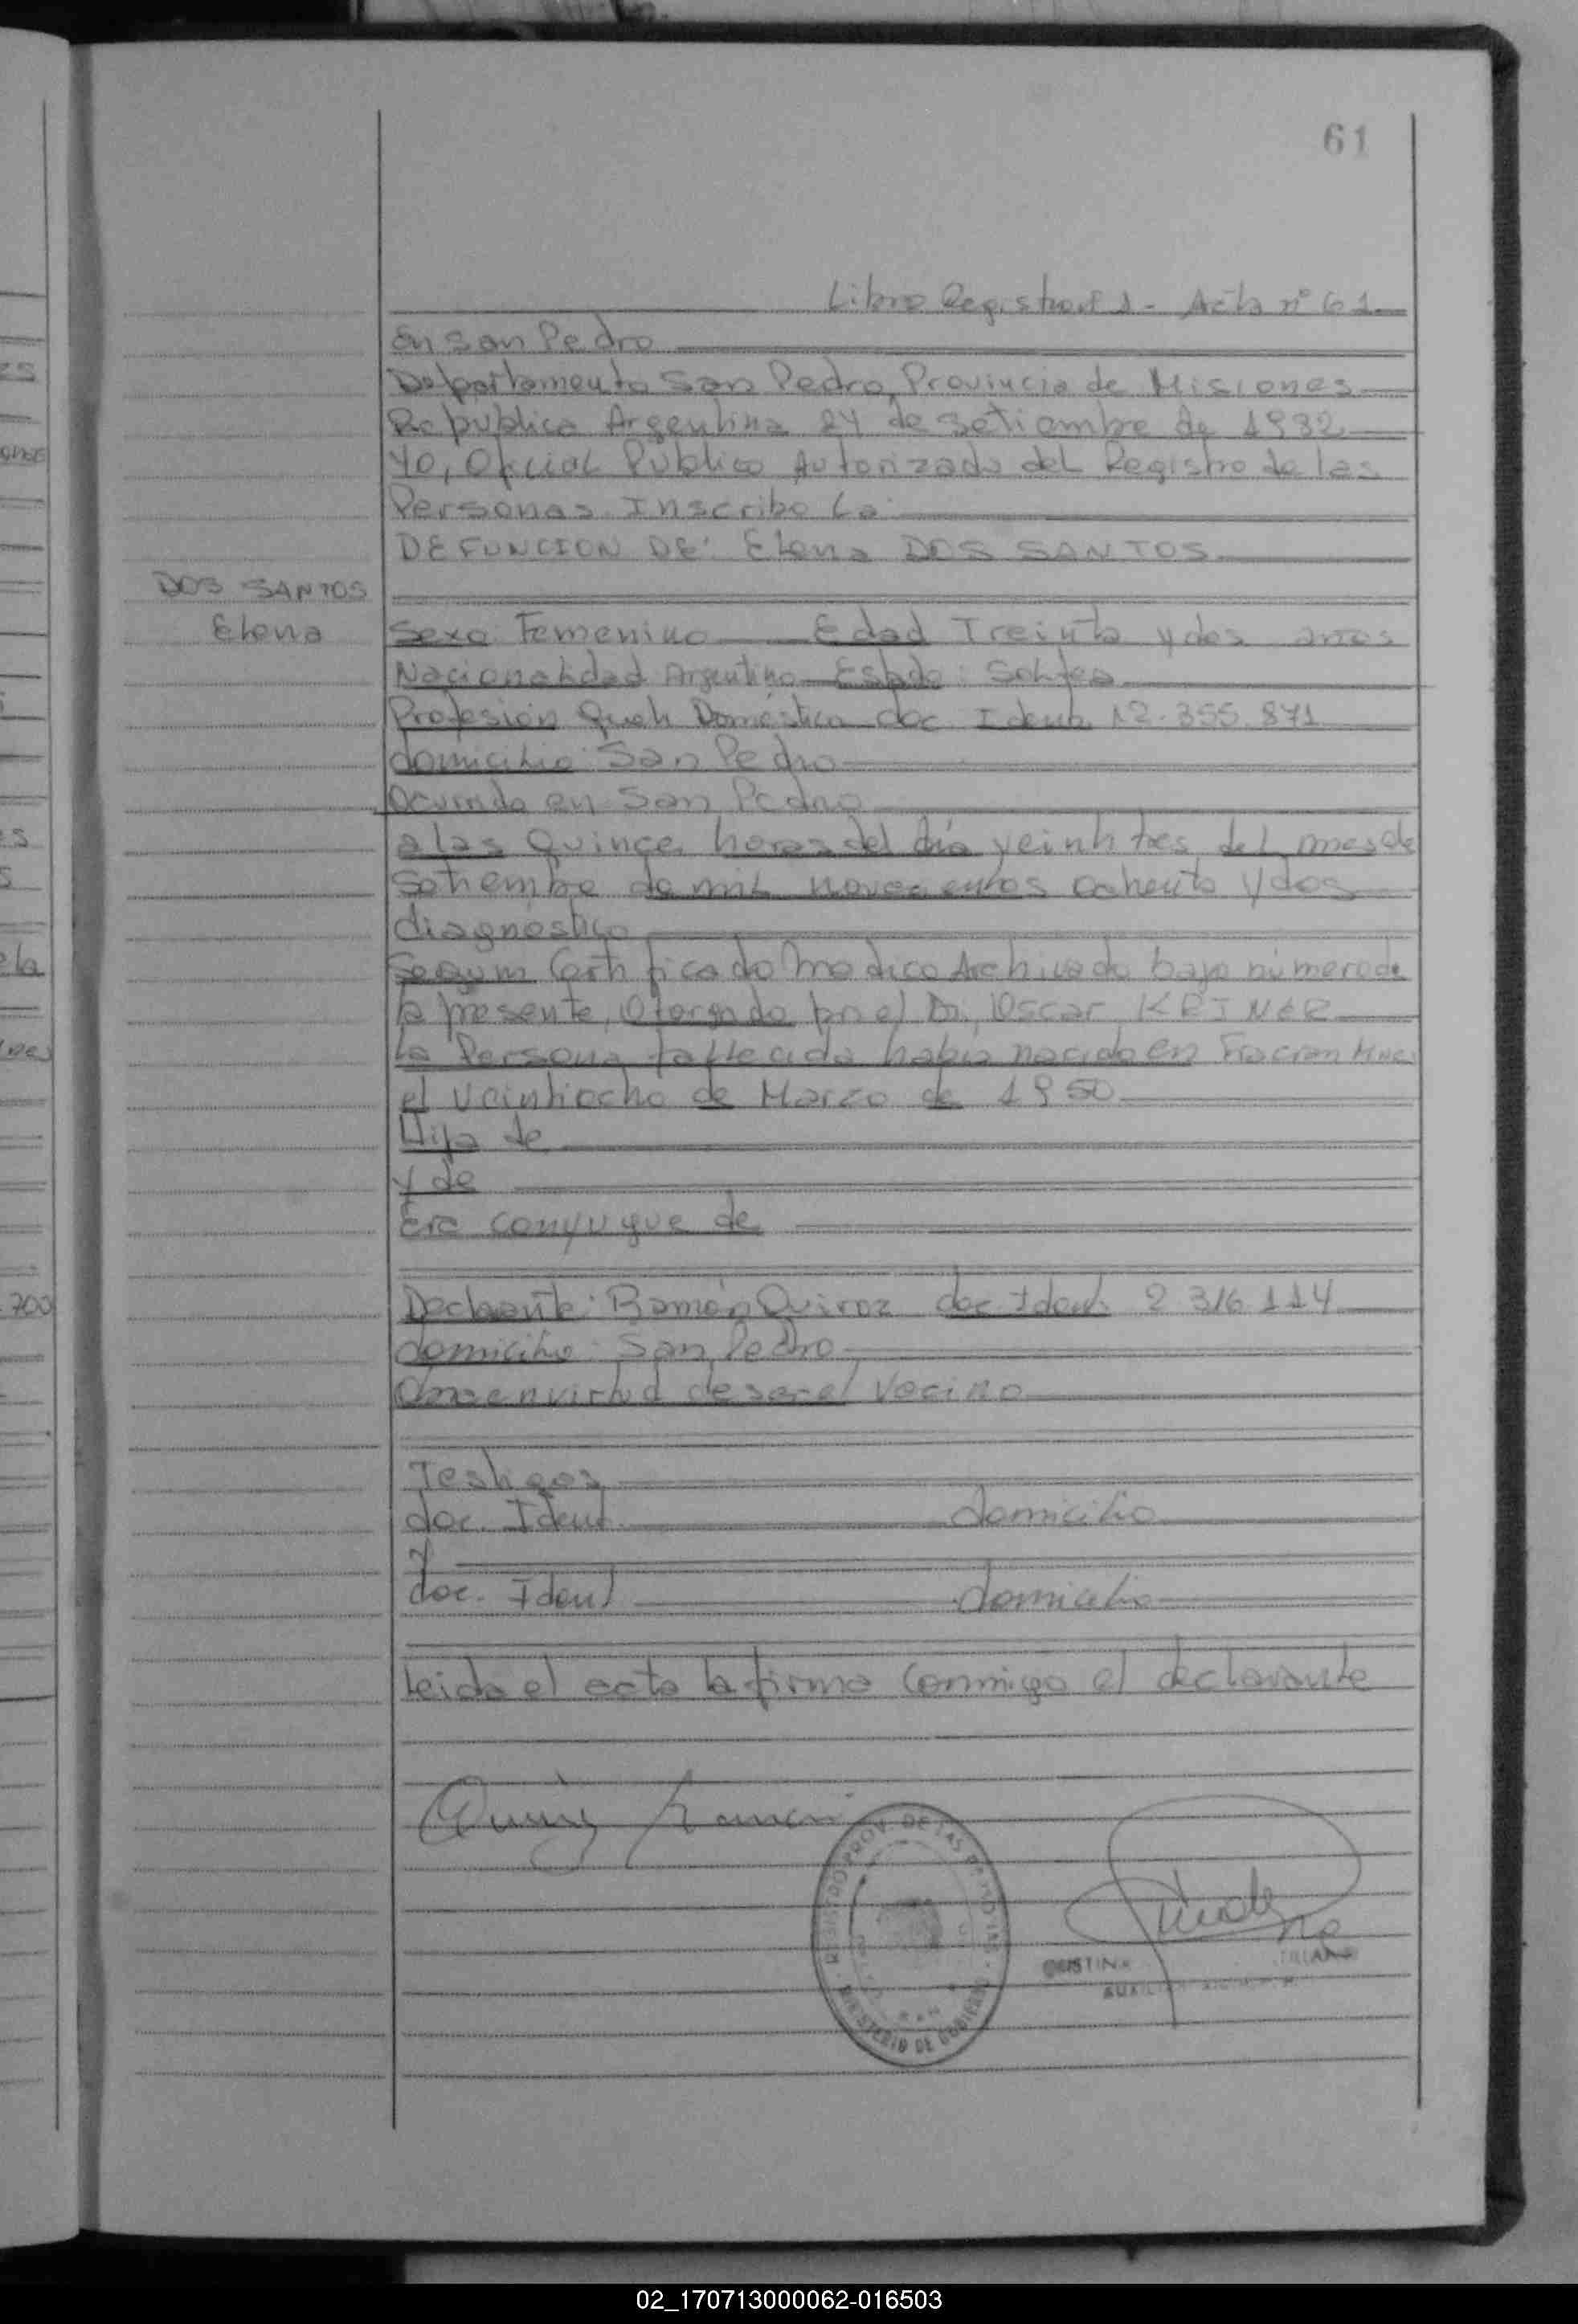 61
Libro Registro nº 1 - Acta nº 61
En San Pedro
Departamento San Pedro, Provincia de Misiones
Republica Argentina 24 de Setiembre de 1982
Yo, Oficial Publico Autorizado del Registro de las
Personas Inscribo la:
DEFUNCION DE: Elena DOS SANTOS
DOS SANTOS
Elena
Sexo Femenino Edad Treinta y dos años
Nacionalidad Argentina Estado: Soltera
Profesión Queh Doméstico doc. Ident. 12.355.871
domicilio: San Pedro
Ocurrida en San Pedro
a las Quince horas del día veintitres del mes de
Setiembre de mil novecientos ochenta y dos
diagnóstico
Segun Certificado Medico Archivado bajo número de
la presente, Otorgado por el Dr. Oscar KRINER
la Persona fallecida había nacido en Fracran Mnes
el veintiocho de Marzo de 1950
Hija de
y de
Era conyugue de
Declarante: Ramón Quiroz doc. Ident. 2.316.114
domicilio: San Pedro
Obra en virtud de ser el Vecino
Testigos
doc. Ident. domicilio
y
doc. Ident domicilio
Leida el acta la firma conmigo el declarante
Ramon
REGISTRO PROV. DE LAS PERSONAS
MINISTERIO DE GOBIERNO
02_170713000062-016503